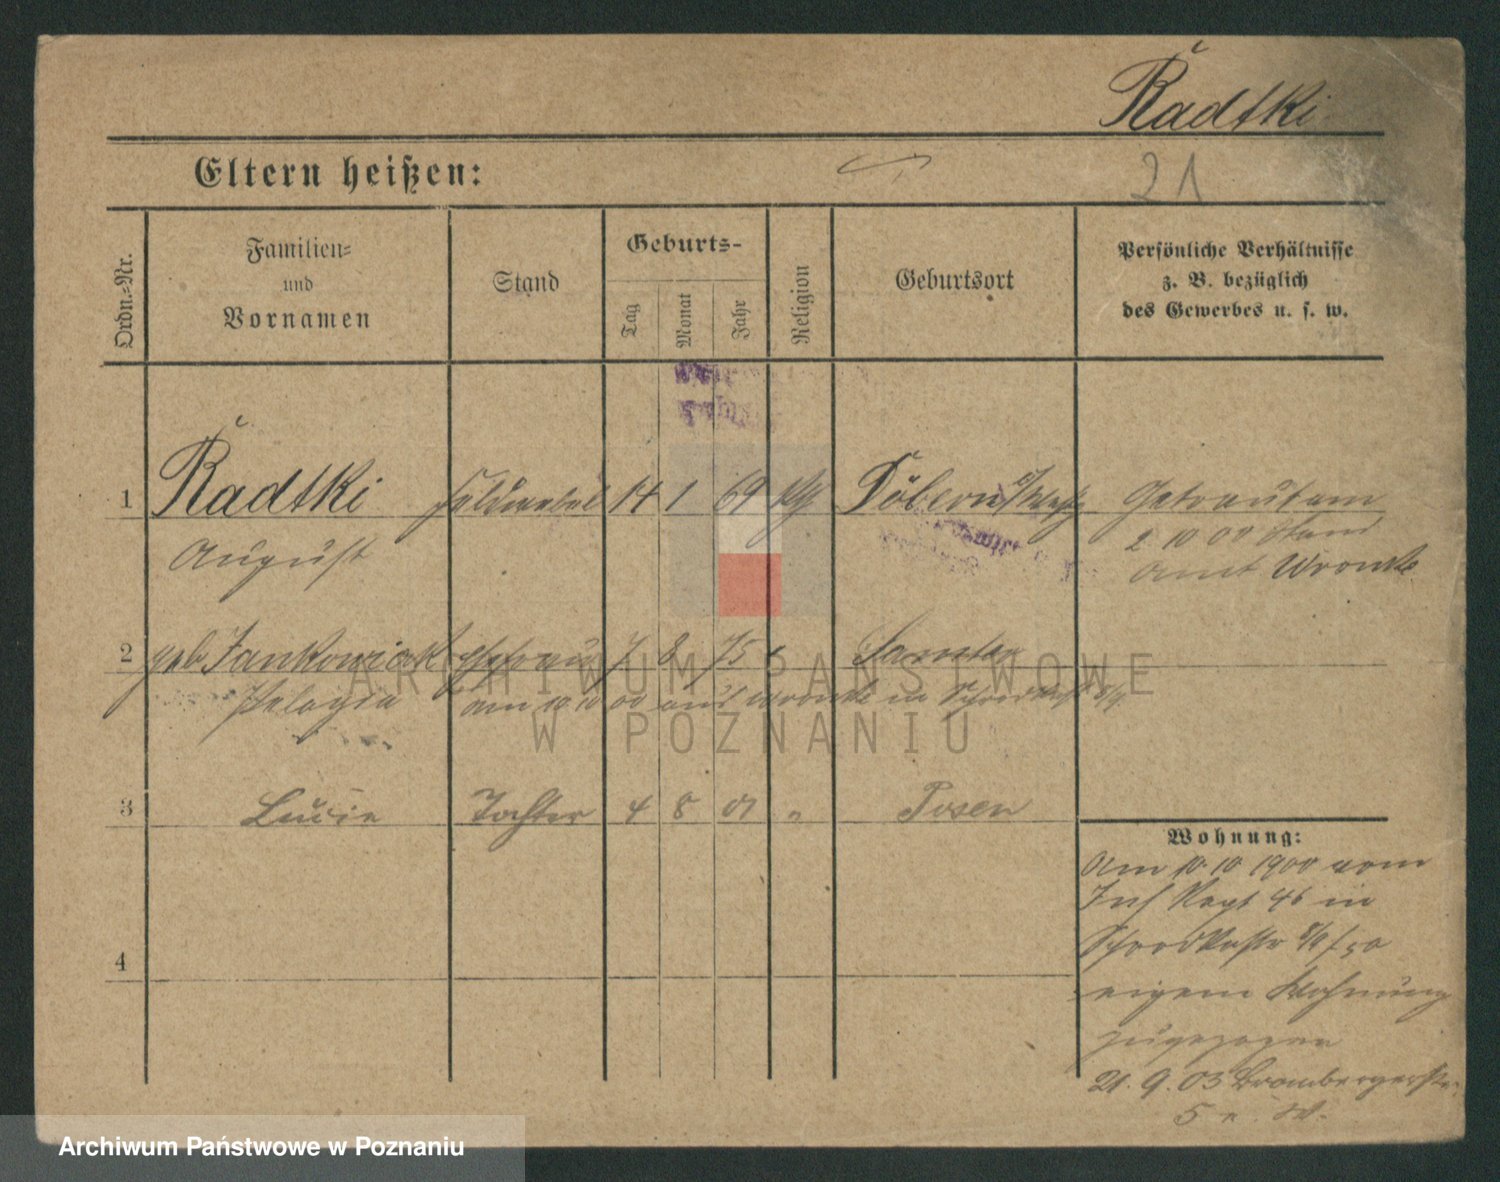 Radtki
Eltern heißen:
21
Ordn.-Nr.
Familien-
und
Vornamen
Stand
Geburts-
Tag
Monat
Jahr
Religion
Geburtsort
Persönliche Verhältnisse
z. B. bezüglich
des Gewerbes u. s. w.
1 Radtki Feldwebel 14 1 69 Döbern Getraut am
August 2 10 00 Stand
amt Wronke
2 geb Jankowiak Ehefrau 7 8 75 Samter
Pelagia am 10 10 00 aus Wronke in
3 Lucie Tochter 4 8 01 " Posen
4
Wohnung:
Am 10.10.1900 vom
Inf Regt 46 in
Schrodkastr 8/9
eigene Wohnung
zugezogen
21. 9. 03 Brombergerstr.
5
ARCHIWUM PAŃSTWOWE
W POZNANIU
Archiwum Państwowe w Poznaniu